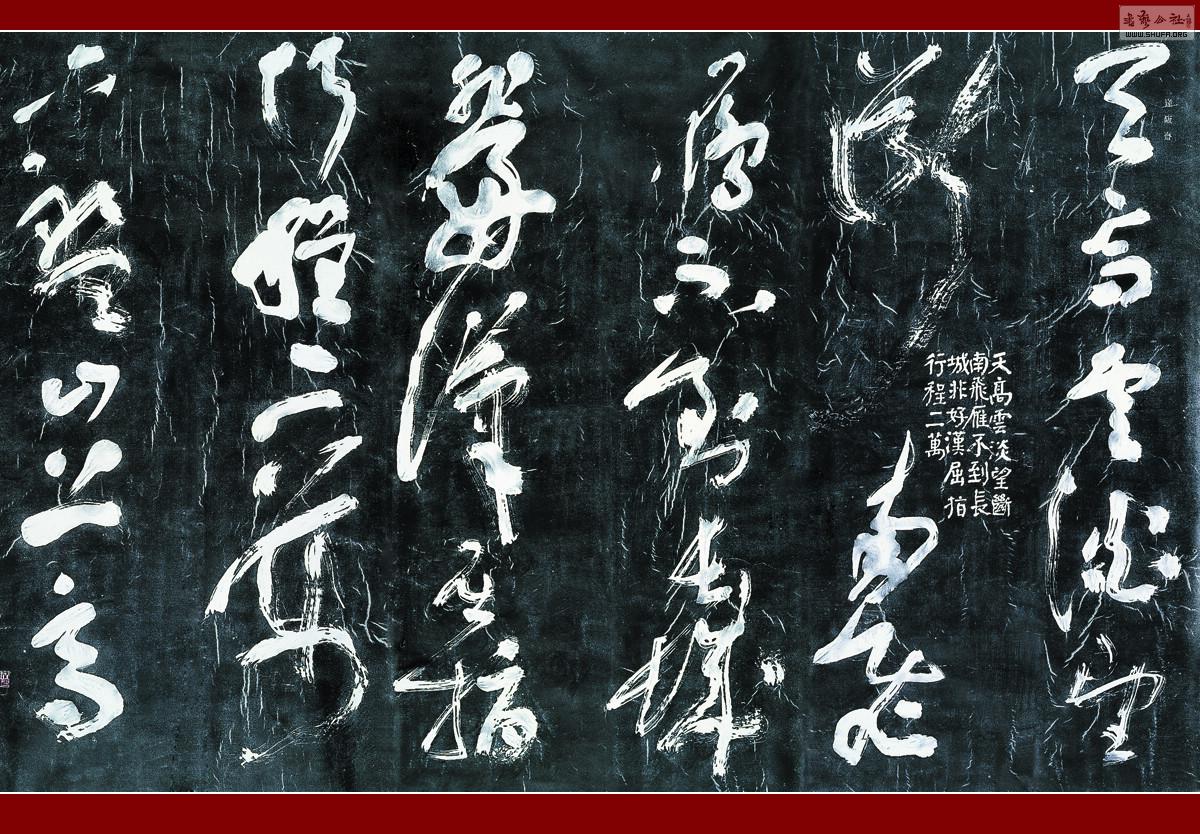 书艺公社
WWW.SHUFA.ORG
天高雲淡望
斷南飛
雁不到長城
非好漢屈指
行程二萬
六盤山上高
天高雲淡望斷
南飛雁不到長
城非好漢屈指
行程二萬